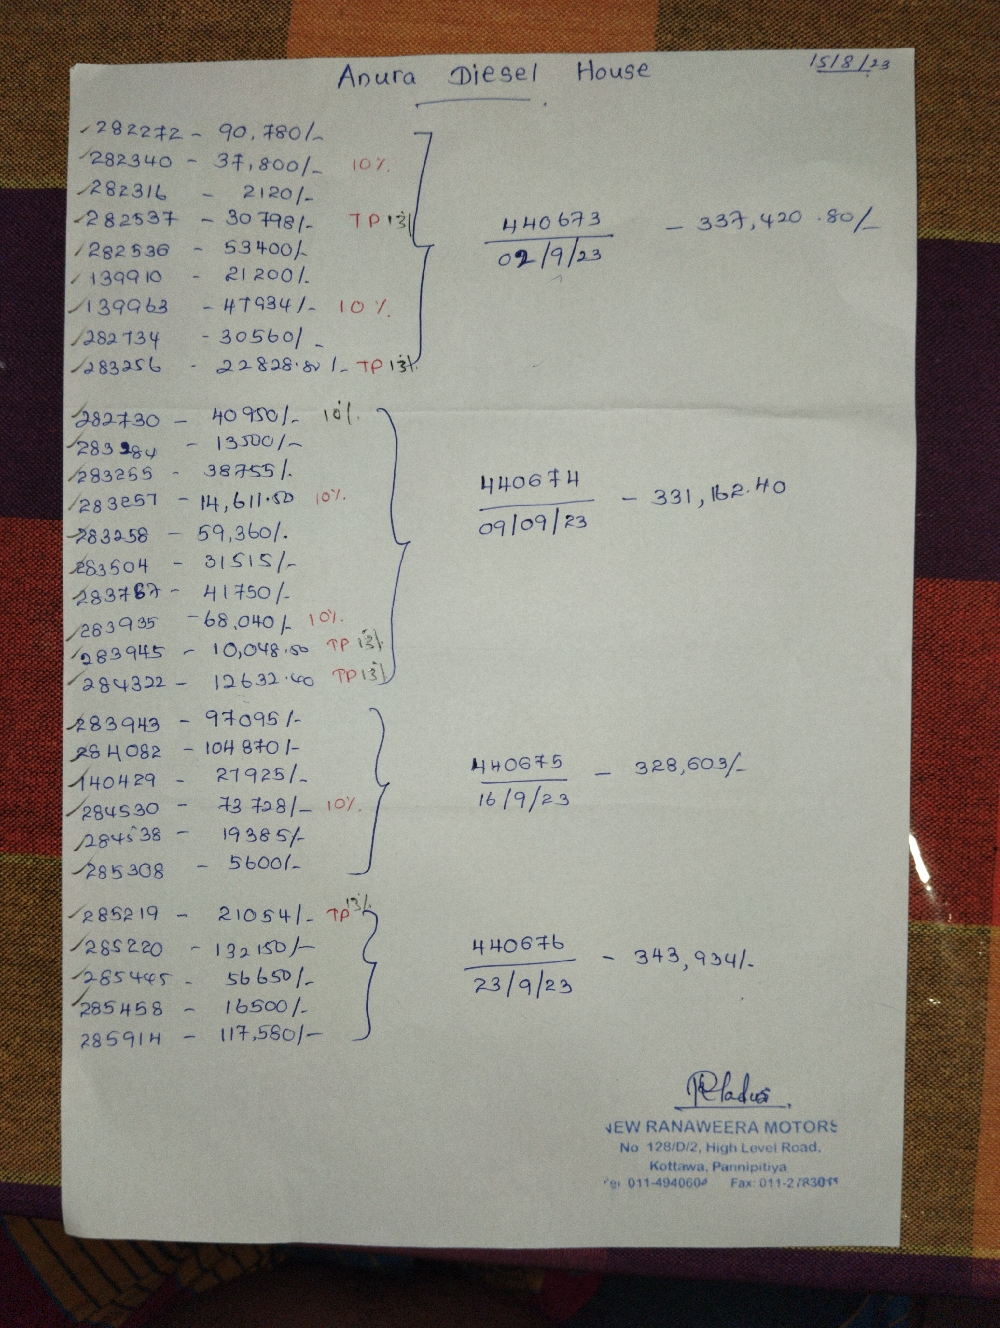 Anura Diesel House
15/8/23
282272 - 90,780/-
282340 - 37,800/- 10%
282316 - 2120/-
282537 - 30798/- TP 13%
282536 - 53400/-
139910 - 21200/-
139963 - 47934/- 10%
282734 - 30560/-
283256 - 22828.80/- TP 13%
440673 - 337,420.80/-
02/9/23
282730 - 40950/- 10%
283284 - 13500/-
283255 - 38755/-
283257 - 14,611.50 10%
283258 - 59,360/-
283504 - 31515/-
283767 - 41750/-
283935 - 68,040/- 10%
283945 - 10,048.50 TP 13%
284322 - 12632.40 TP 13%
440674 - 331,162.40
09/09/23
283943 - 97095/-
284082 - 104870/-
140429 - 27925/-
284530 - 73728/- 10%
284538 - 19385/-
285308 - 5600/-
440675 - 328,603/-
16/9/23
285219 - 21054/- TP 13%
285220 - 132150/-
285445 - 56650/-
285458 - 16500/-
285914 - 117,580/-
440676 - 343,934/-
23/9/23
NEW RANAWEERA MOTORS
No 128/D/2, High Level Road,
Kottawa, Pannipitiya
Tel 011-494060 Fax: 011-27830